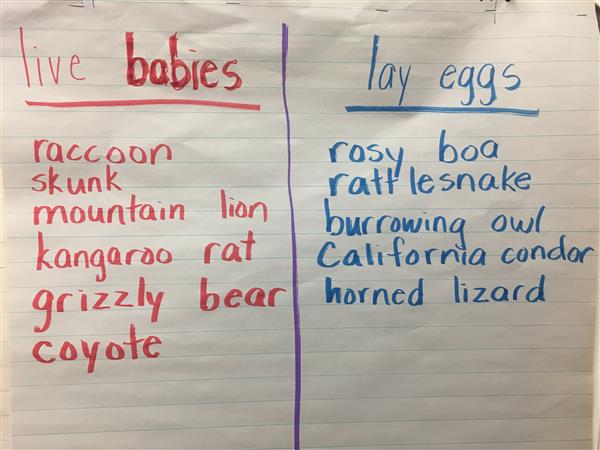 live babies
raccoon
skunk
mountain lion
kangaroo rat
grizzly bear
coyote
lay eggs
rosy boa
rattlesnake
burrowing owl
California condor
horned lizard